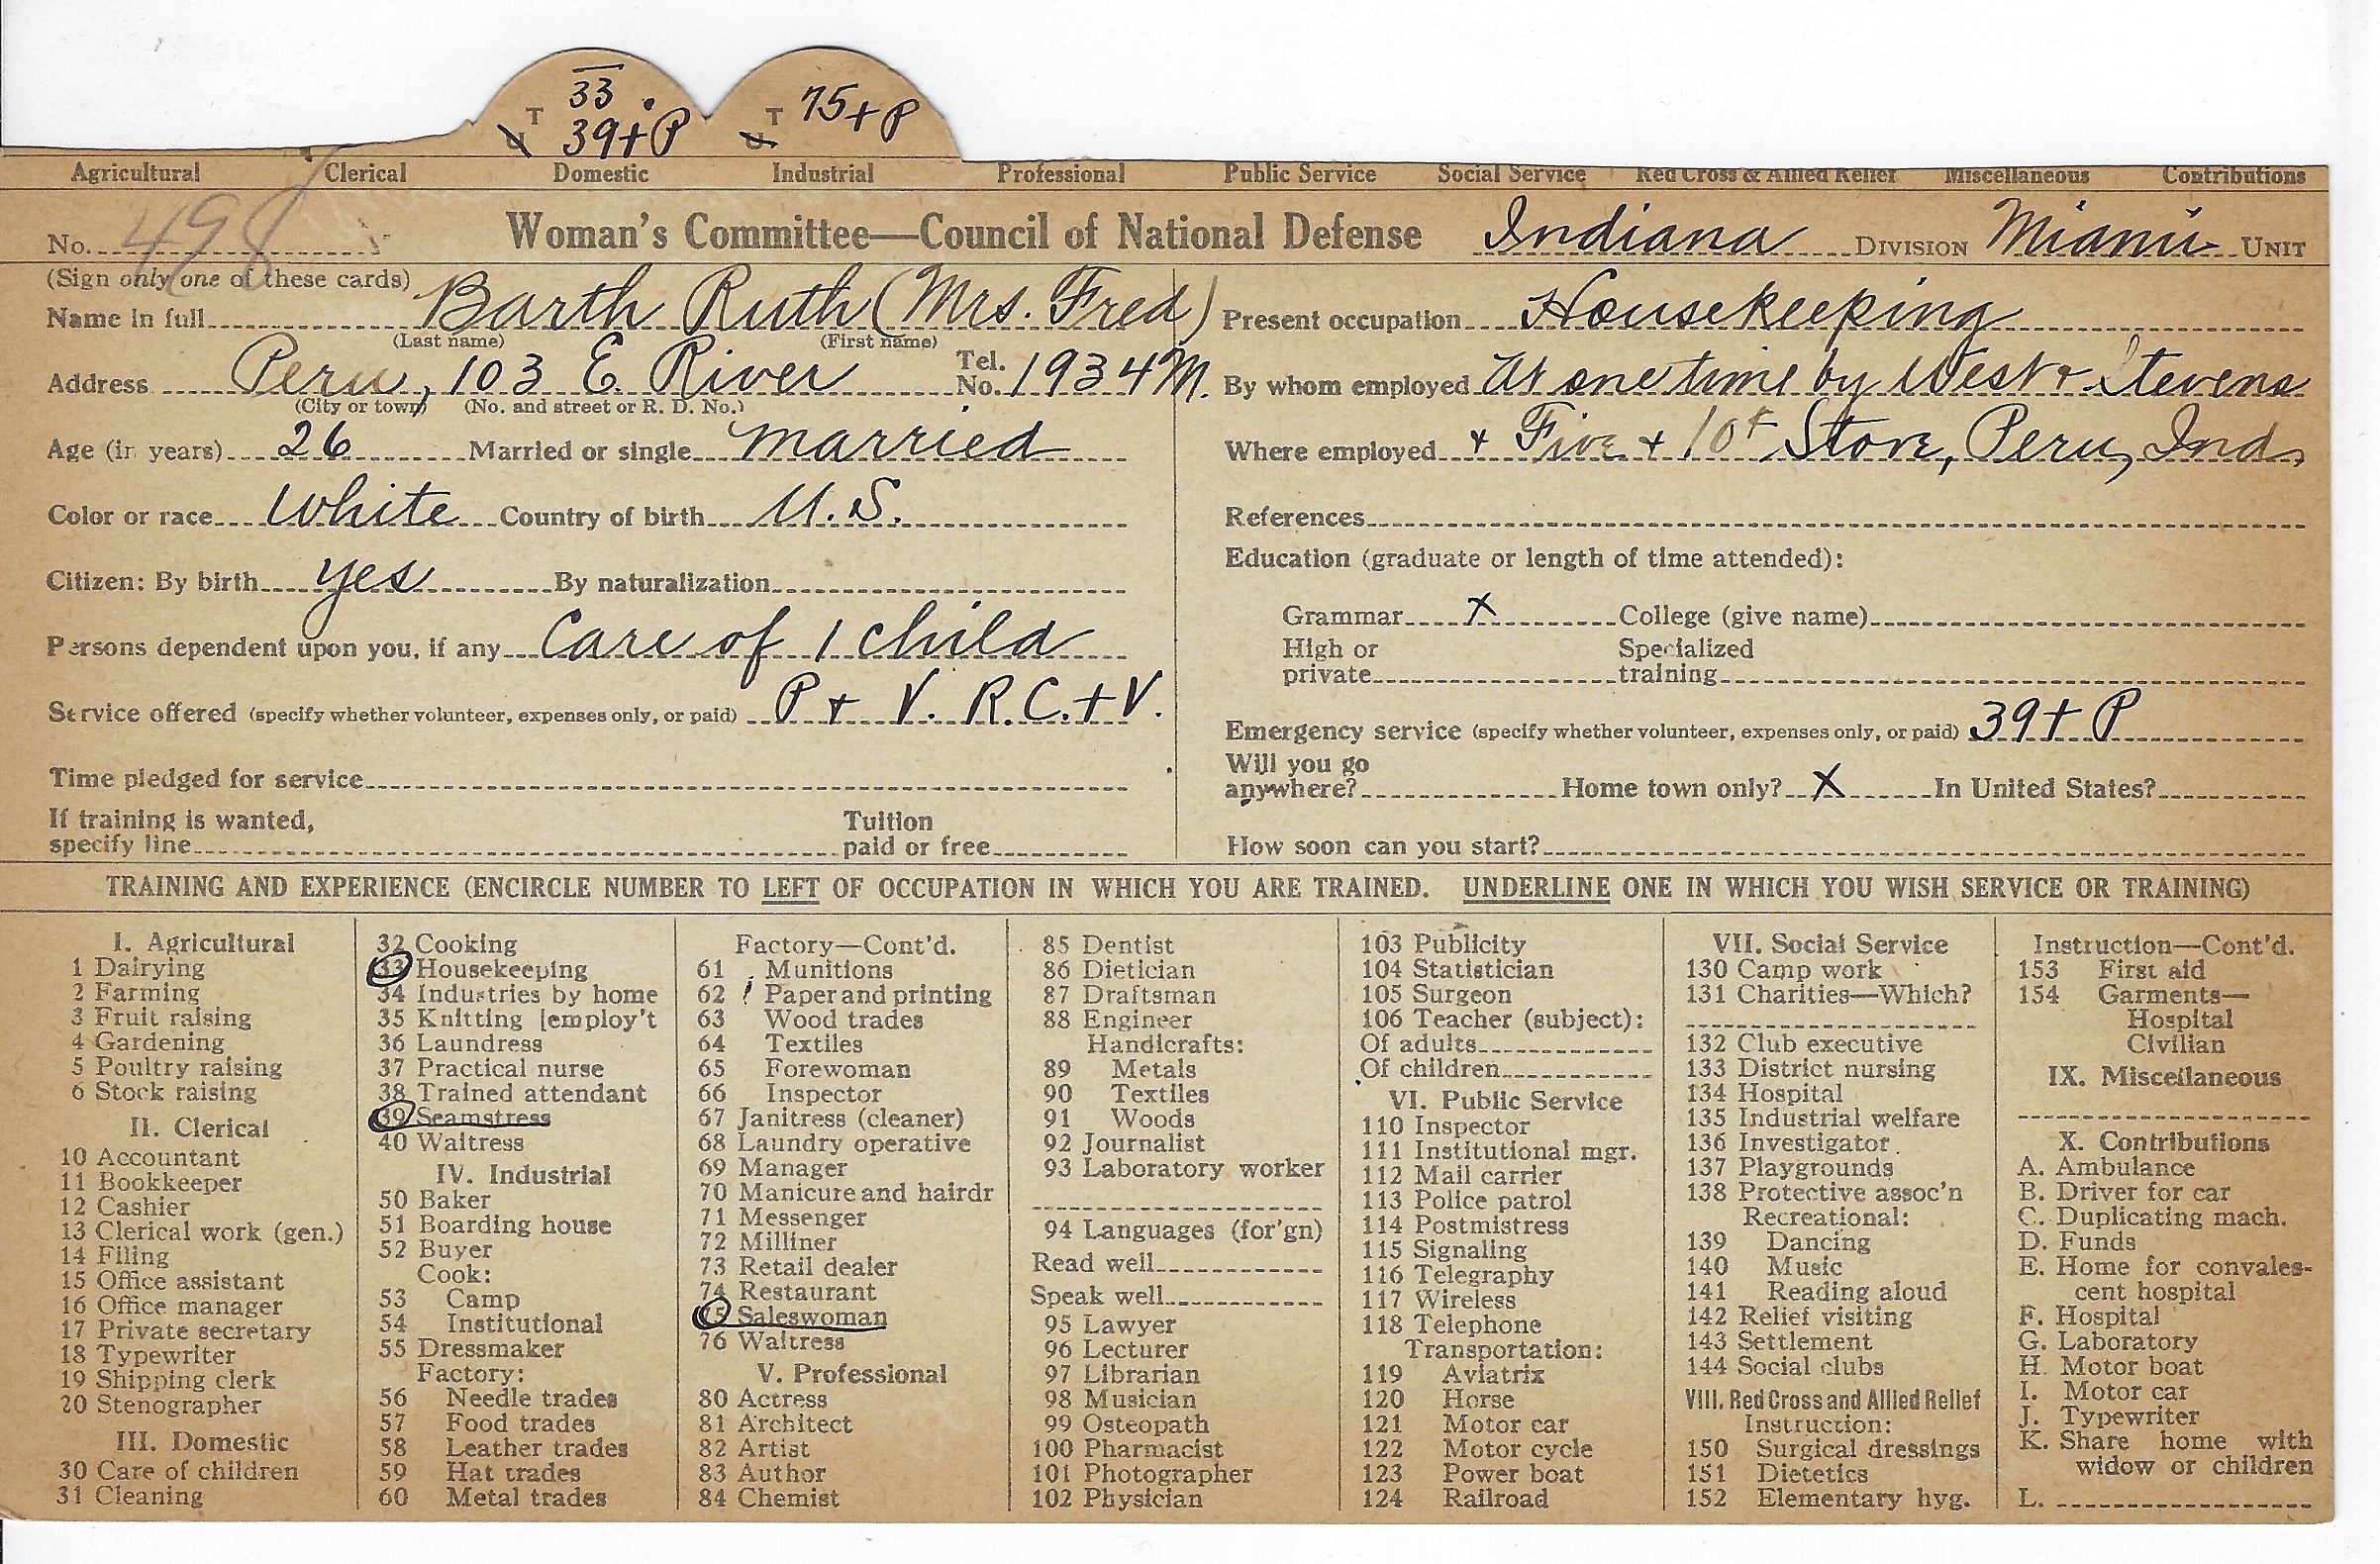 33
T 39+P
U
T 75+P
U
Agricultural Clerical Domestic Industrial Professional Public Service Social Service Red Cross & Allied Relief Miscellaneous Contributions
No. 498 Woman's Committee—Council of National Defense Indiana DIVISION Miami UNIT
(Sign only one of these cards)
Name in full Barth Ruth (Mrs. Fred)
(Last name) (First name)
Address Peru, 103 E. River Tel. No. 1934M.
(City or town) (No. and street or R. D. No.)
Age (in years) 26 Married or single married
Color or race White Country of birth U.S.
Citizen: By birth yes By naturalization
Persons dependent upon you, if any Care of 1 child
Service offered (specify whether volunteer, expenses only, or paid) P + V. R.C.+V.
Time pledged for service
If training is wanted,
specify line Tuition paid or free
Present occupation Housekeeping
By whom employed At one time by West + Stevens
Where employed + Five + 10¢ Store, Peru, Ind.
References
Education (graduate or length of time attended):
Grammar X College (give name)
High or private Specialized training
Emergency service (specify whether volunteer, expenses only, or paid) 39+P
Will you go anywhere? Home town only? X In United States?
How soon can you start?
TRAINING AND EXPERIENCE (ENCIRCLE NUMBER TO LEFT OF OCCUPATION IN WHICH YOU ARE TRAINED. UNDERLINE ONE IN WHICH YOU WISH SERVICE OR TRAINING)
I. Agricultural
1 Dairying
2 Farming
3 Fruit raising
4 Gardening
5 Poultry raising
6 Stock raising
II. Clerical
10 Accountant
11 Bookkeeper
12 Cashier
13 Clerical work (gen.)
14 Filing
15 Office assistant
16 Office manager
17 Private secretary
18 Typewriter
19 Shipping clerk
20 Stenographer
III. Domestic
30 Care of children
31 Cleaning
32 Cooking
33 Housekeeping
34 Industries by home
35 Knitting [employ't
36 Laundress
37 Practical nurse
38 Trained attendant
39 Seamstress
40 Waitress
IV. Industrial
50 Baker
51 Boarding house
52 Buyer
Cook:
53 Camp
54 Institutional
55 Dressmaker
Factory:
56 Needle trades
57 Food trades
58 Leather trades
59 Hat trades
60 Metal trades
Factory—Cont'd.
61 Munitions
62 Paper and printing
63 Wood trades
64 Textiles
65 Forewoman
66 Inspector
67 Janitress (cleaner)
68 Laundry operative
69 Manager
70 Manicure and hairdr
71 Messenger
72 Milliner
73 Retail dealer
74 Restaurant
75 Saleswoman
76 Waitress
V. Professional
80 Actress
81 Architect
82 Artist
83 Author
84 Chemist
85 Dentist
86 Dietician
87 Draftsman
88 Engineer
Handicrafts:
89 Metals
90 Textiles
91 Woods
92 Journalist
93 Laboratory worker
94 Languages (for'gn)
Read well
Speak well
95 Lawyer
96 Lecturer
97 Librarian
98 Musician
99 Osteopath
100 Pharmacist
101 Photographer
102 Physician
103 Publicity
104 Statistician
105 Surgeon
106 Teacher (subject):
Of adults
Of children
VI. Public Service
110 Inspector
111 Institutional mgr.
112 Mail carrier
113 Police patrol
114 Postmistress
115 Signaling
116 Telegraphy
117 Wireless
118 Telephone
Transportation:
119 Aviatrix
120 Horse
121 Motor car
122 Motor cycle
123 Power boat
124 Railroad
VII. Social Service
130 Camp work
131 Charities—Which?
132 Club executive
133 District nursing
134 Hospital
135 Industrial welfare
136 Investigator
137 Playgrounds
138 Protective assoc'n
Recreational:
139 Dancing
140 Music
141 Reading aloud
142 Relief visiting
143 Settlement
144 Social clubs
VIII. Red Cross and Allied Relief
Instruction:
150 Surgical dressings
151 Dietetics
152 Elementary hyg.
Instruction—Cont'd.
153 First aid
154 Garments—
Hospital
Civilian
IX. Miscellaneous
X. Contributions
A. Ambulance
B. Driver for car
C. Duplicating mach.
D. Funds
E. Home for convales-
cent hospital
F. Hospital
G. Laboratory
H. Motor boat
I. Motor car
J. Typewriter
K. Share home with
widow or children
L.